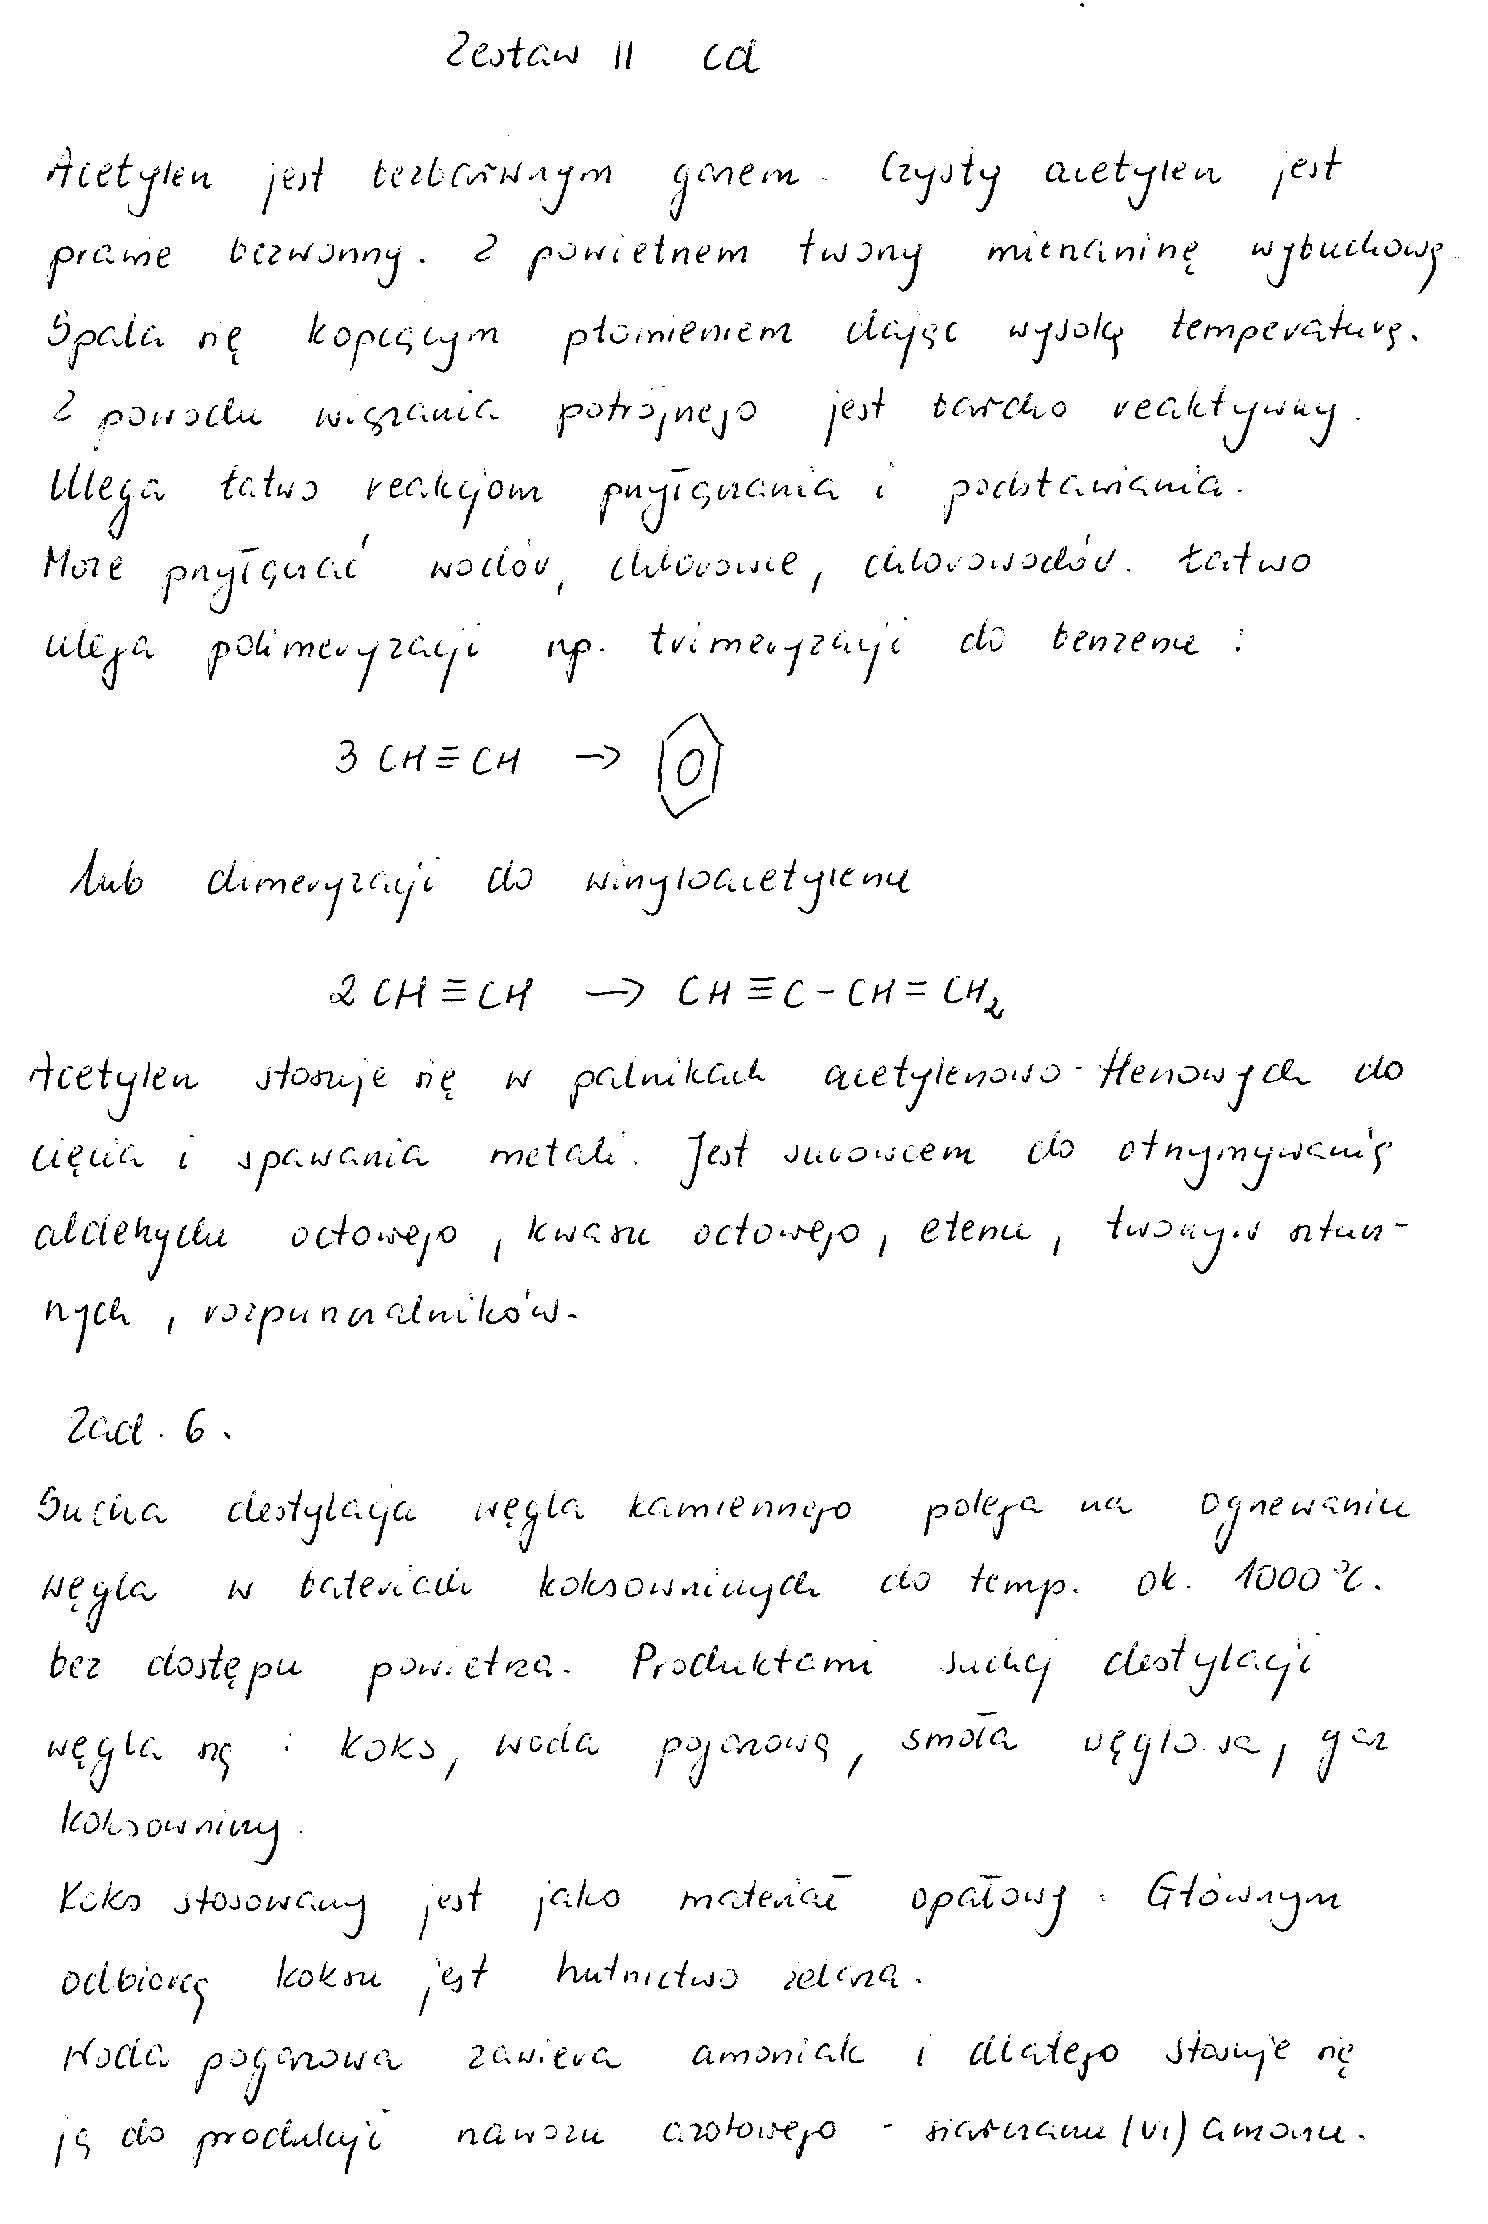 Zestaw II cd
Acetylen jest bezbarwnym gazem. Czysty acetylen jest
prawie bezwonny. Z powietrzem tworzy mieszaninę wybuchową
Spala się kopcącym płomieniem dając wysoką temperaturę.
Z powodu wiązania potrójnego jest bardzo reaktywny.
Ulega łatwo reakcjom przyłączania i podstawiania.
Może przyłączać wodór, chlorowce, chlorowodór. Łatwo
ulega polimeryzacji np. trimeryzacji do benzenu :
3 CH≡CH →
lub dimeryzacji do winyloacetylenu
2 CH≡CH → CH≡C-CH=CH₂
Acetylen stosuje się w palnikach acetylenowo-tlenowych do
cięcia i spawania metali. Jest surowcem do otrzymywania
aldehydu octowego, kwasu octowego, etenu, tworzyw sztucz-
nych, rozpuszczalników.
Zad. 6.
Sucha destylacja węgla kamiennego polega na ogrzewaniu
węgla w bateriach koksowniczych do temp. ok. 1000°C.
bez dostępu powietrza. Produktami suchej destylacji
węgla są : koks, woda pogazowa, smoła węglowa, gaz
koksowniczy.
Koks stosowany jest jako materiał opałowy. Głównym
odbiorcą koksu jest hutnictwo żelaza.
Woda pogazowa zawiera amoniak i dlatego stosuje się
ją do produkcji nawozu azotowego - siarczanu (VI) amonu.